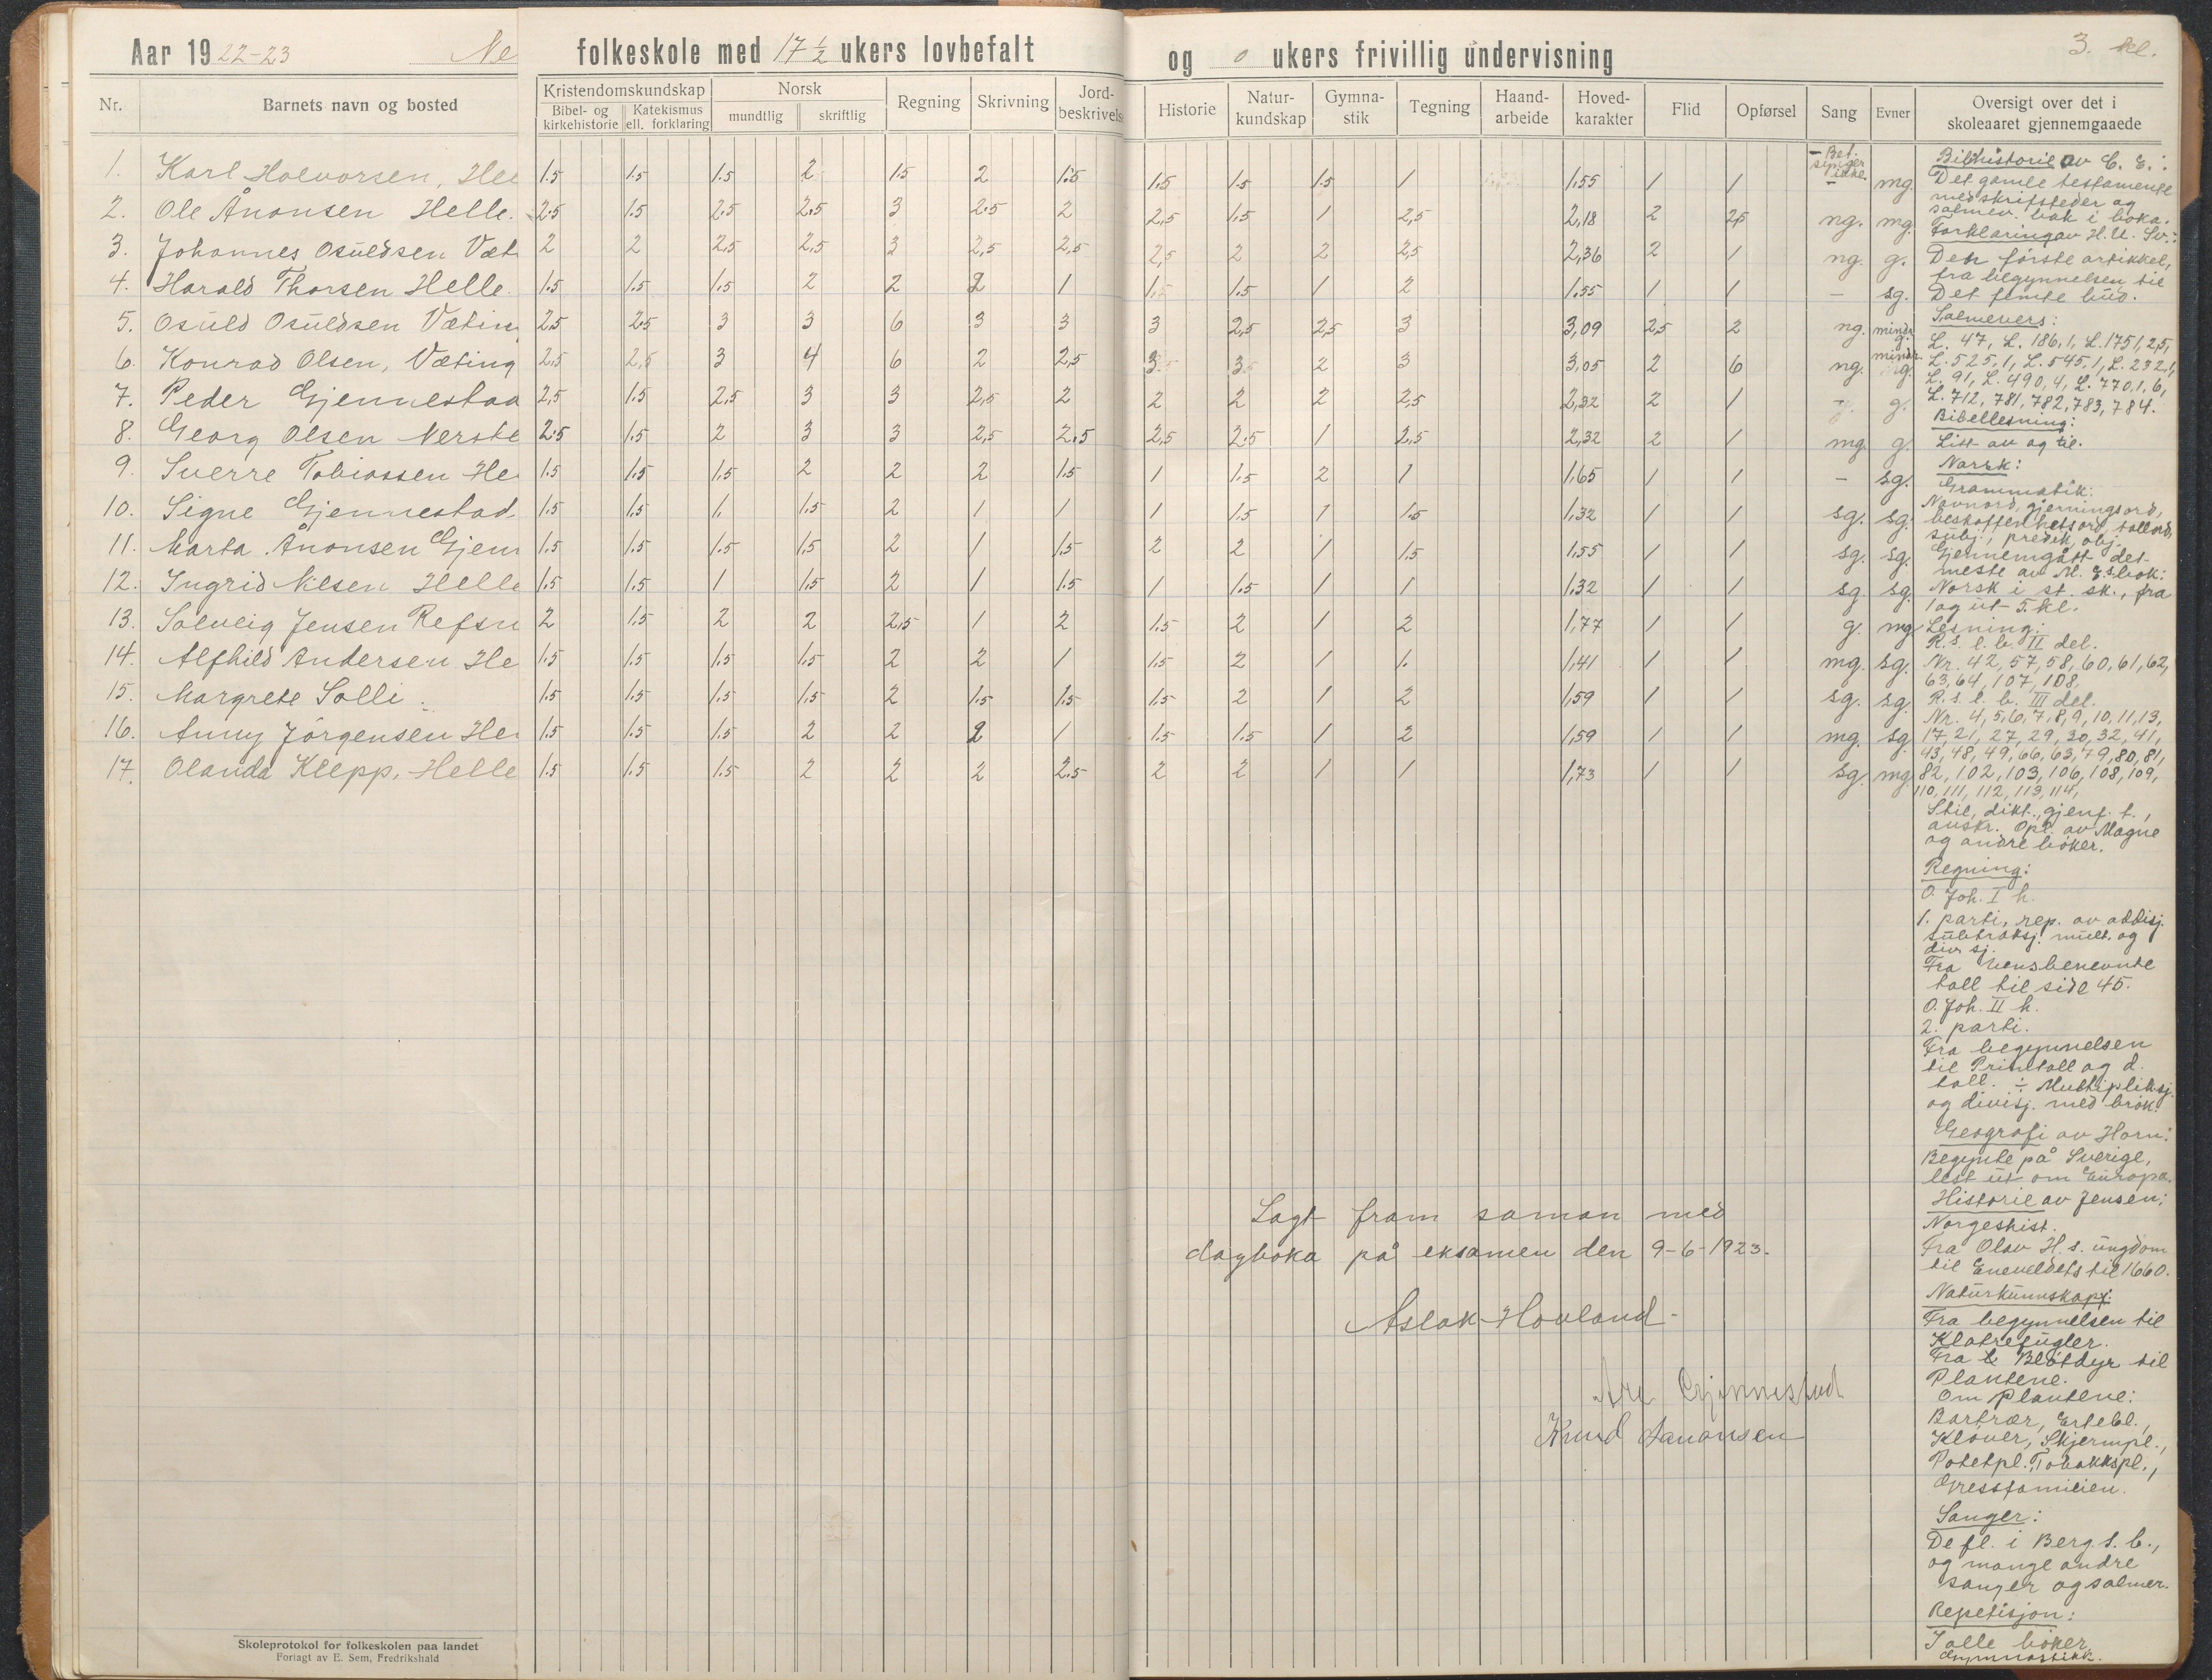 Aar 1922-23 Ne folkeskole med 17 1/2 ukers lovbefalt og 0 ukers frivillig undervisning 3. kl.
Nr. Barnets navn og bosted Kristendomskundskap Bibel- og kirkehistorie Katekismus ell. forklaring Norsk mundtlig skriftlig Regning Skrivning Jord-beskrivelse Historie Natur-kundskap Gymna-stik Tegning Haand-arbeide Hoved-karakter Flid Opførsel Sang Evner Oversigt over det i skoleaaret gjennemgaaede
- Bet. synger ikke.
1. Karl Halvorsen, Hel 1.5 1.5 1.5 2 1.5 2 1.5 1.5 1.5 1.5 1 1.55 1 1 - mg.
2. Ole Ånonsen Helle. 2.5 1.5 2.5 2.5 3 2.5 2 2,5 1.5 1 2,5 2,18 2 2,5 ng. mg.
3. Johannes Osuldsen Væt 2 2 2,5 2,5 3 2,5 2,5 2,5 2 2 2,5 2,36 2 1 ng. g.
4. Harald Thorsen Helle. 1.5 1.5 1.5 2 2 2 1 1.5 1.5 1 2 1.55 1 1 - sg.
5. Osuld Osuldsen Vætin 2,5 2.5 3 3 6 3 3 3 2,5 2,5 3 3,09 2,5 2 ng. mindr. g.
6. Konrad Olsen, Væting 2,5 2,5 3 4 6 2 2,5 3.5 3.5 2 3 3,05 2 6 ng. mindr. g.
7. Peder Gjennestad 2,5 1.5 2.5 3 3 2,5 2 2 2 2 2,5 2,32 2 1 - g.
8. Georg Olsen Nerste 2.5 1.5 2 3 3 2,5 2.5 2,5 2.5 1 2,5 2,32 2 1 mg. g.
9. Sverre Tobiassen He 1.5 1.5 1,5 2 2 2 1.5 1 1.5 2 1 1,65 1 1 - sg.
10. Signe Gjennestad 1.5 1.5 1. 1.5 2 1 1 1 1.5 1 1.5 1,32 1 1 sg. sg.
11. Marta Ånonsen Gjen 1.5 1.5 1.5 1,5 2 1 1.5 2 2 1 1.5 1.55 1 1 sg. sg.
12. Ingrid Nilsen Helle 1.5 1.5 1 1.5 2 1 1.5 1 1.5 1 1 1.32 1 1 sg. sg.
13. Solveig Jensen Refsn 2 1.5 2 2 2,5 1 2 1.5 2 1 2 1,77 1 1 g. mg.
14. Alfhild Andersen He 1.5 1.5 1.5 1.5 2 2 1 1.5 2 1 1. 1,41 1 1 mg. sg.
15. Margrete Solli. 1.5 1.5 1.5 1.5 2 1.5 1.5 1.5 2 1 2 1,59 1 1 sg. sg.
16. Anny Jörgensen He 1.5 1.5 1.5 2 2 2 1 1.5 1.5 1 2 1,59 1 1 mg. sg.
17. Olanda Klepp, Helle 1.5 1.5 1.5 2 2 2 2.5 2 2 1 1 1,73 1 1 sg. mg.
Bibhistorie av C. E.:
Det gamle testamente
med skriftsteder og
salmev. bak i boka.
Forklaring av H. U. Sv.:
Den förste artikkel,
fra begynnelsen til
Det femte bud.
Salmevers:
L. 47, L. 186,1, L. 175 1,2,5,
L. 525,1, L. 545,1, L. 232,1,
L. 91, L. 490,4, L. 770,1,6,
L. 712, 781, 782, 783, 784.
Bibellesning:
Litt av og til.
Norsk:
Grammatik:
Navnord, gjerningsord,
beskaffenhetsord, tallord,
subj., predik, obj.
Gjennemgått det
meste av M. E.s bok:
Norsk i st. sk., fra
1 og ut 5. kl.
Lesning:
R. s. l. b. II del.
Nr. 42, 57, 58, 60, 61, 62,
63, 64, 107, 108,
R. s. l. b. III del.
Nr. 4, 5, 6, 7, 8, 9, 10, 11, 13,
17, 21, 27, 29, 30, 32, 41,
43, 48, 49, 66, 63, 79, 80, 81,
82, 102, 103, 106, 108, 109,
110, 111, 112, 113, 114,
Stil, dikt., gjenf. t.,
avskr. Opl. av Magne
og andre böker.
Regning:
O. Joh. I h.
1. parti, rep. av addisj.
subtraksj. mult. og
div sj.
Fra bensbenevnte
tall til side 45.
O. Joh. II h.
2. parti.
Fra begynnelsen
til Primtall og d.
tall. ÷ Multipliksj.
og divisj. med brök.
Geografi av Horn:
Begynte på Sverige,
lest ut om Europa.
Historie av Jensen:
Norgeshist.
Fra Olav H. s. ungdom
til Eneveldets til 1660.
Naturkunnskap:
Fra begynnelsen til
Klatrefugler.
Fra Blötdyr til
Plantene.
Om plantene:
Bartrær, Ertebl.,
Klöver, Skjermpl.,
Potetpl. Tobakkspl.,
Gressfamilien.
Sanger:
De fl. i Berg s. b.,
og mange andre
sanger og salmer.
Repetisjon:
I alle böker.
Gymnastikk.
Lagt fram saman med
dagboka på eksamen den 9-6-1923.
Aslak Hovland
Are Gjennestad
Knud Aanonsen
Skoleprotokol for folkeskolen paa landet
Forlagt av E. Sem, Fredrikshald